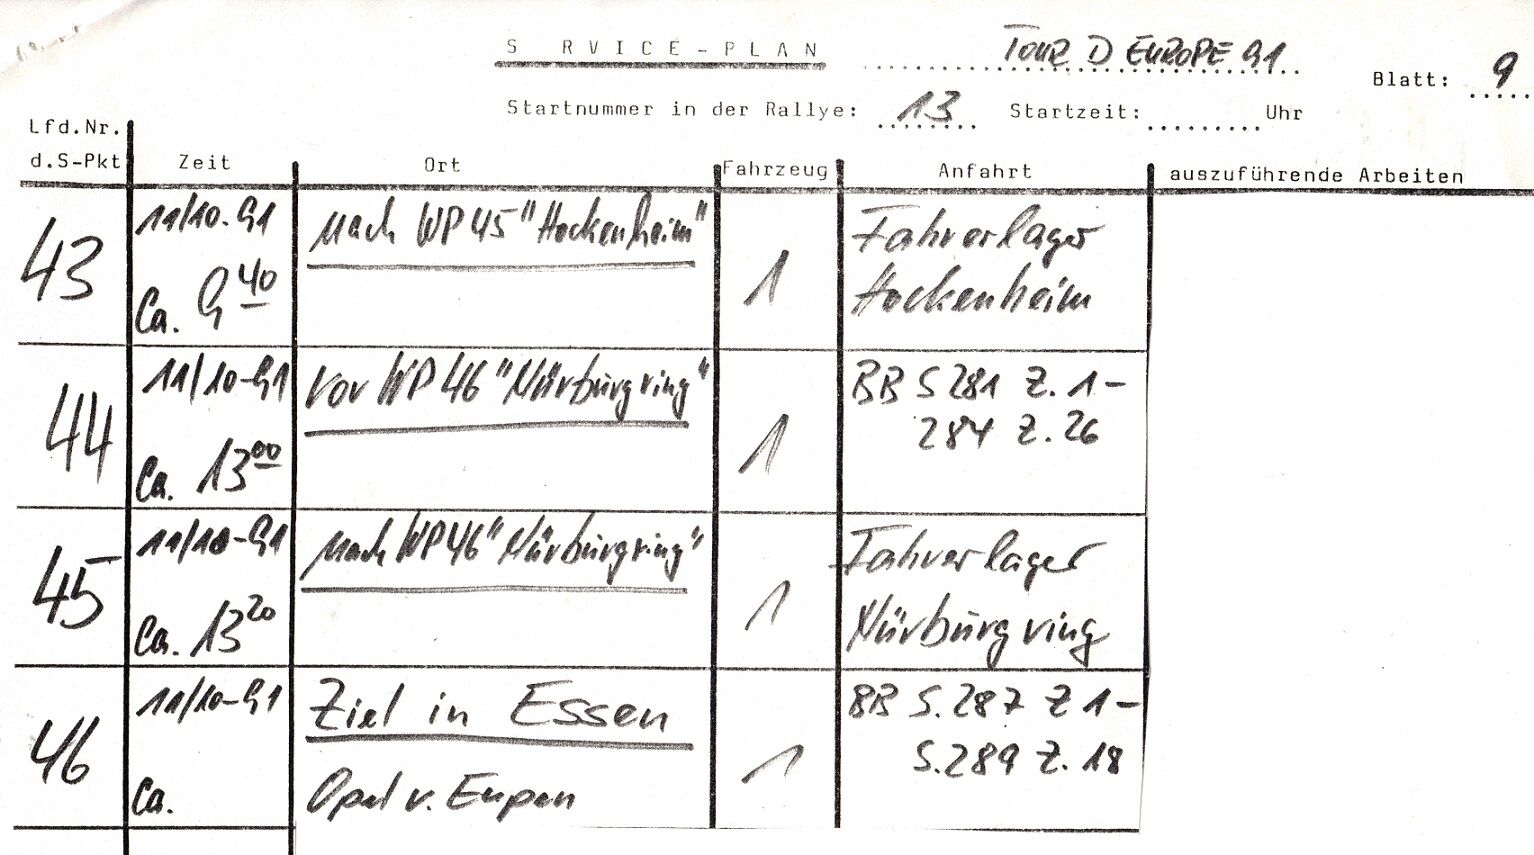 S RVICE-PLAN TOUR D EUROPE 91 Blatt: 9
Startnummer in der Rallye: 13 Startzeit: Uhr
Lfd.Nr.
d.S-Pkt Zeit Ort Fahrzeug Anfahrt auszuführende Arbeiten
43 11/10-91 nach WP 45 "Hockenheim" 1 Fahrerlager
Ca. 9 40 Hockenheim
44 11/10-91 vor WP 46 "Nürburgring" 1 BB S 281 Z. 1-
Ca. 13 00 284 Z. 26
45 11/10-91 nach WP 46 "Nürburgring" 1 Fahrerlager
Ca. 13 20 Nürburgring
46 11/10-91 Ziel in Essen 1 BB S. 287 Z 1-
Ca. Opel v. Eupen S. 289 Z. 18